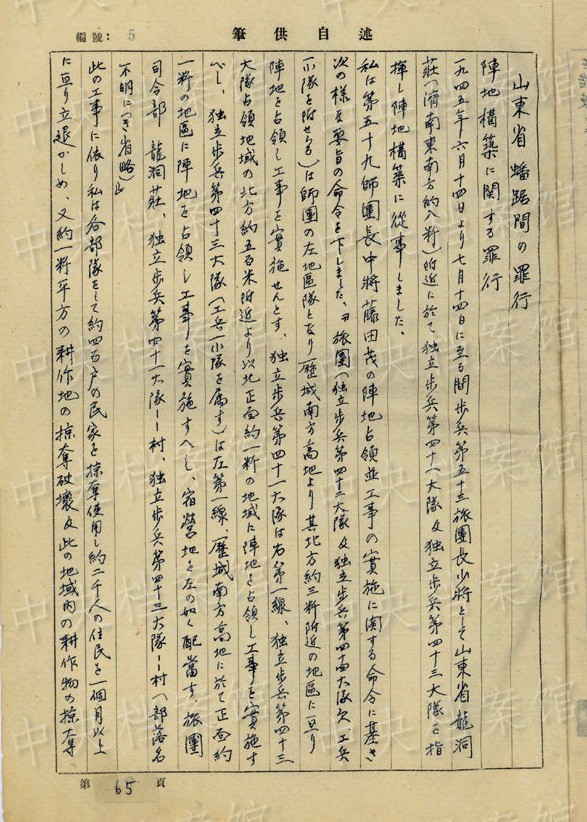 編號: 5
述自供筆
山東省蟠踞間の罪行
陣地構築に関する罪行
一九四五年六月十四日より七月十四日に至る間歩兵第五十三旅團長少将として山東省龍洞
莊(濟南東南方約八粁)附近に於て独立歩兵第四十一大隊及独立歩兵第四十三大隊を指
揮し陣地構築に從事しました。
私は第五十九師團長中將藤田茂の陣地占領並工事の實施に関する命令に基き
次の様な要旨の命令を下しました、旅團(独立歩兵第四十二大隊及独立歩兵第四十四大隊欠 工兵
一小隊を附せらる)は師團の左地區隊となり歴城南方高地より其北方約三粁附近の地區に亘り
陣地を占領し工事を實施せんとす、独立歩兵第四十一大隊は右第一線、独立歩兵第四十三
大隊占領地域の北方約五百米附近より以北正面約一粁の地域に陣地を占領し工事を實施す
べし、独立歩兵第四十三大隊(工兵一小隊を属す)は左第一線、歴城南方高地に於て正面約
一粁の地區に陣地を占領し工事を實施すべし、宿營地を左の如く配當す、旅團
司令部 龍洞莊、独立歩兵第四十一大隊――村、独立歩兵第四十三大隊――村(部落名
不明につき省略)」
此の工事に依り私は各部隊をして約四百戸の民家を掠奪使用し約二千人の住民を一個月以上
に亘り立退かしめ、又約一粁平方の耕作地の掠奪破壊及此の地域内の耕作物の掠奪
第 65 頁